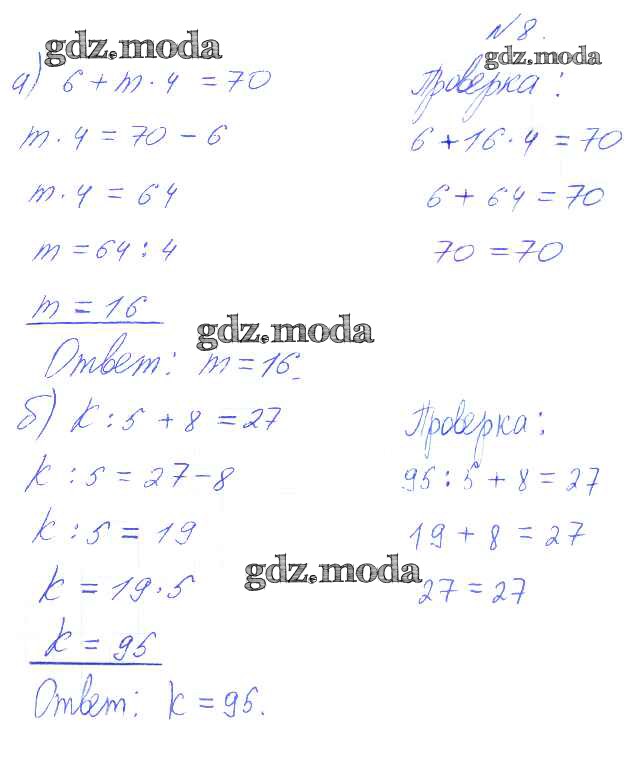 № 8.
gdz.moda
gdz.moda
а) 6 + m · 4 = 70
m · 4 = 70 - 6
m · 4 = 64
m = 64 : 4
m = 16
Ответ: m = 16.
Проверка:
6 + 16 · 4 = 70
6 + 64 = 70
70 = 70
gdz.moda
б) k : 5 + 8 = 27
k : 5 = 27 - 8
k : 5 = 19
k = 19 · 5
k = 95
Ответ: k = 95.
Проверка:
95 : 5 + 8 = 27
19 + 8 = 27
27 = 27
gdz.moda